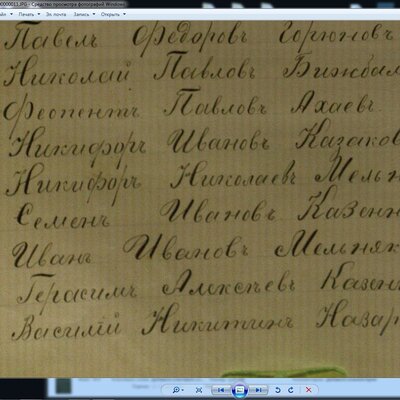 00000011.JPG - Средство просмотра фотографий Windows
Файл Печать Эл. почта Запись Открыть
Павелъ Ѳедоровъ Горюновъ
Николай Павловъ
Павловъ Ахаевъ
Никифоръ Ивановъ Казаков
Никифоръ Николаевъ Мельн
Семенъ Ивановъ Казенн
Иванъ Ивановъ Мельник
Герасимъ Алексѣевъ Казен
Василій Никитинъ Назар